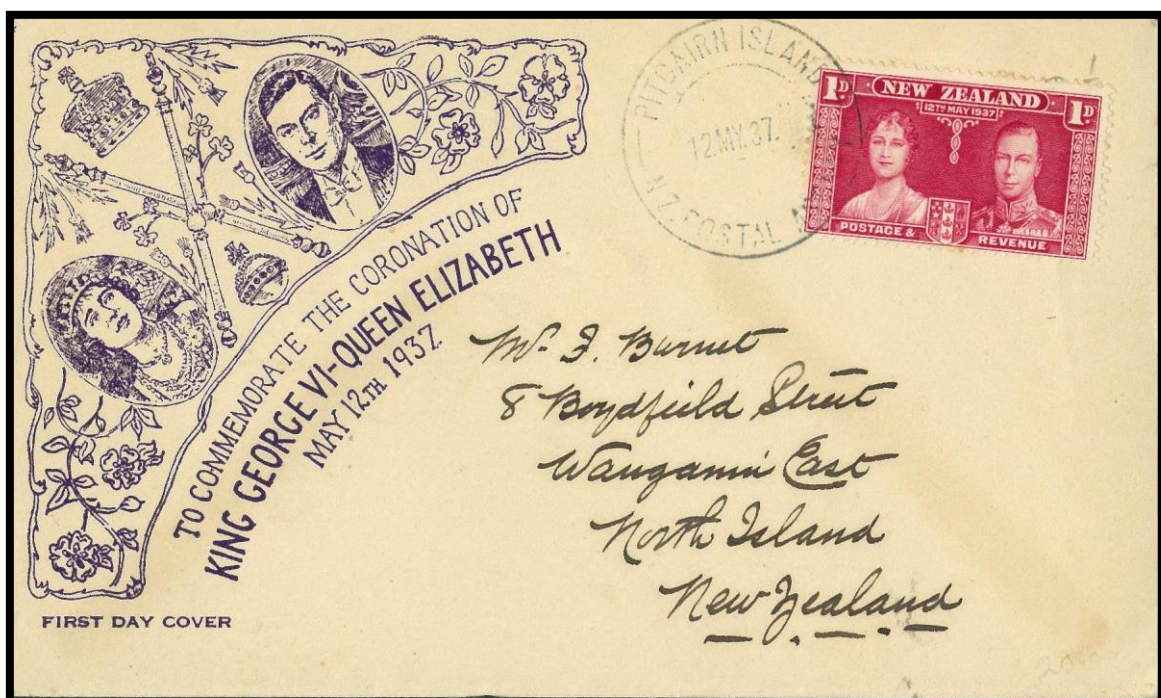 TO COMMEMORATE THE CORONATION OF
KING GEORGE VI-QUEEN ELIZABETH
MAY 12TH. 1937.
FIRST DAY COVER
PITCAIRN ISLAND
12 MY. 37.
N.Z. POSTAL
1D NEW ZEALAND 1D
12TH MAY 1937
POSTAGE & REVENUE
Mr. F. Burnet
8 Boydfield Street
Wanganui East
North Island
New Zealand